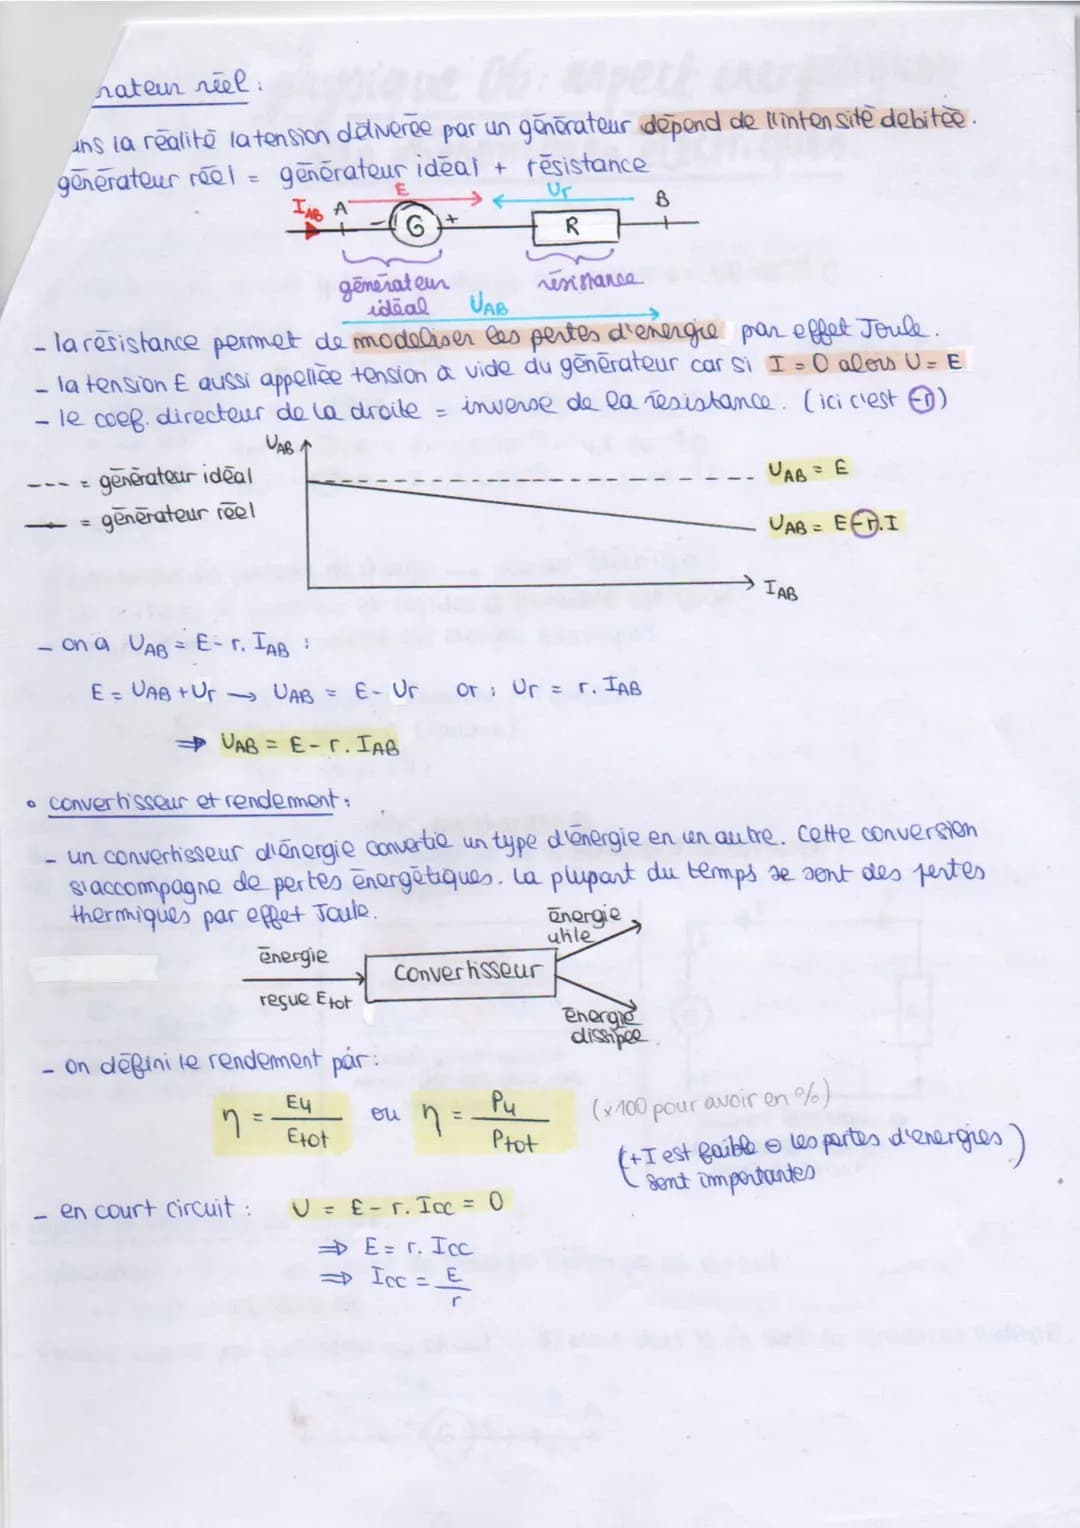 rateur réel :
ans la réalité la tension délivérée par un générateur dépend de l'intensité debitée.
générateur réel = générateur idéal + résistance
E Ur
IAB A B
- G + R
générateur résistance
idéal UAB
- la résistance permet de modeliser les pertes d'energie par effet Joule.
- la tension E aussi appellée tension à vide du générateur car si I = 0 alors U = E
- le coef. directeur de la droite = inverse de la résistance. (ici c'est -r)
UAB
--- = générateur idéal UAB = E
— = générateur réel UAB = E-r.I
IAB
- on a UAB = E-r. IAB :
E = UAB + Ur → UAB = E- Ur or : Ur = r. IAB
⇒ UAB = E-r. IAB
• convertisseur et rendement :
- un convertisseur d'énergie convertie un type d'énergie en un autre. Cette conversion
s'accompagne de pertes énergétiques. La plupart du temps se sont des pertes
thermiques par effet Joule.
énergie
utile
énergie
convertisseur
reçue Etot
énergie
dissipée
- on défini le rendement par :
η = Eu/Etot ou η = Pu/Ptot (x100 pour avoir en %)
(+I est faible ⊖ les pertes d'energies)
sont importantes
- en court circuit : U = E-r. Icc = 0
⇒ E = r. Icc
⇒ Icc = E/r